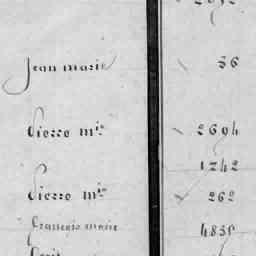 Jean marie 36
Pierre mie 2694
1242
Pierre mie 262
François marie 4836